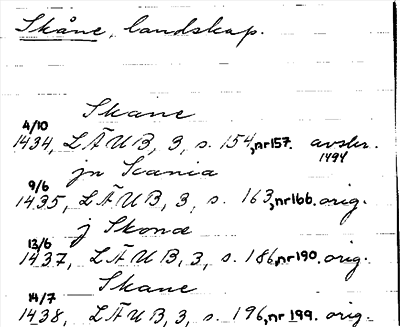 Skåne, landskap.
Skane
4/10
1434, LÄUB, 3, s. 154, nr 157. avskr.
1494
jn Scania
9/6
1435, LÄUB, 3, s. 163, nr 166. orig.
j Skonæ
13/6
1437, LÄUB, 3, s. 186, nr 190. orig.
Skane
14/7
1438, LÄUB, 3, s. 196, nr 199. orig.